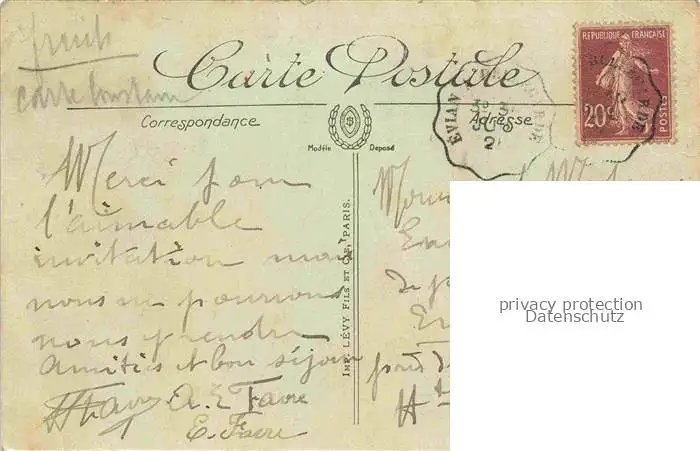 fruit
carte
Carte Postale
Correspondance
Adresse
Modèle Déposé
REPUBLIQUE FRANÇAISE
20c
POSTES
EVIAN
Merci pour
l'aimable
invitation mais
nous ne pourrons
nous y rendre
Amitiés et bon séjour
A. E Favre
E. Favre
IMP. LÉVY FILS ET CIE, PARIS.
En
de p
En
près d
Hte
privacy protection
Datenschutz